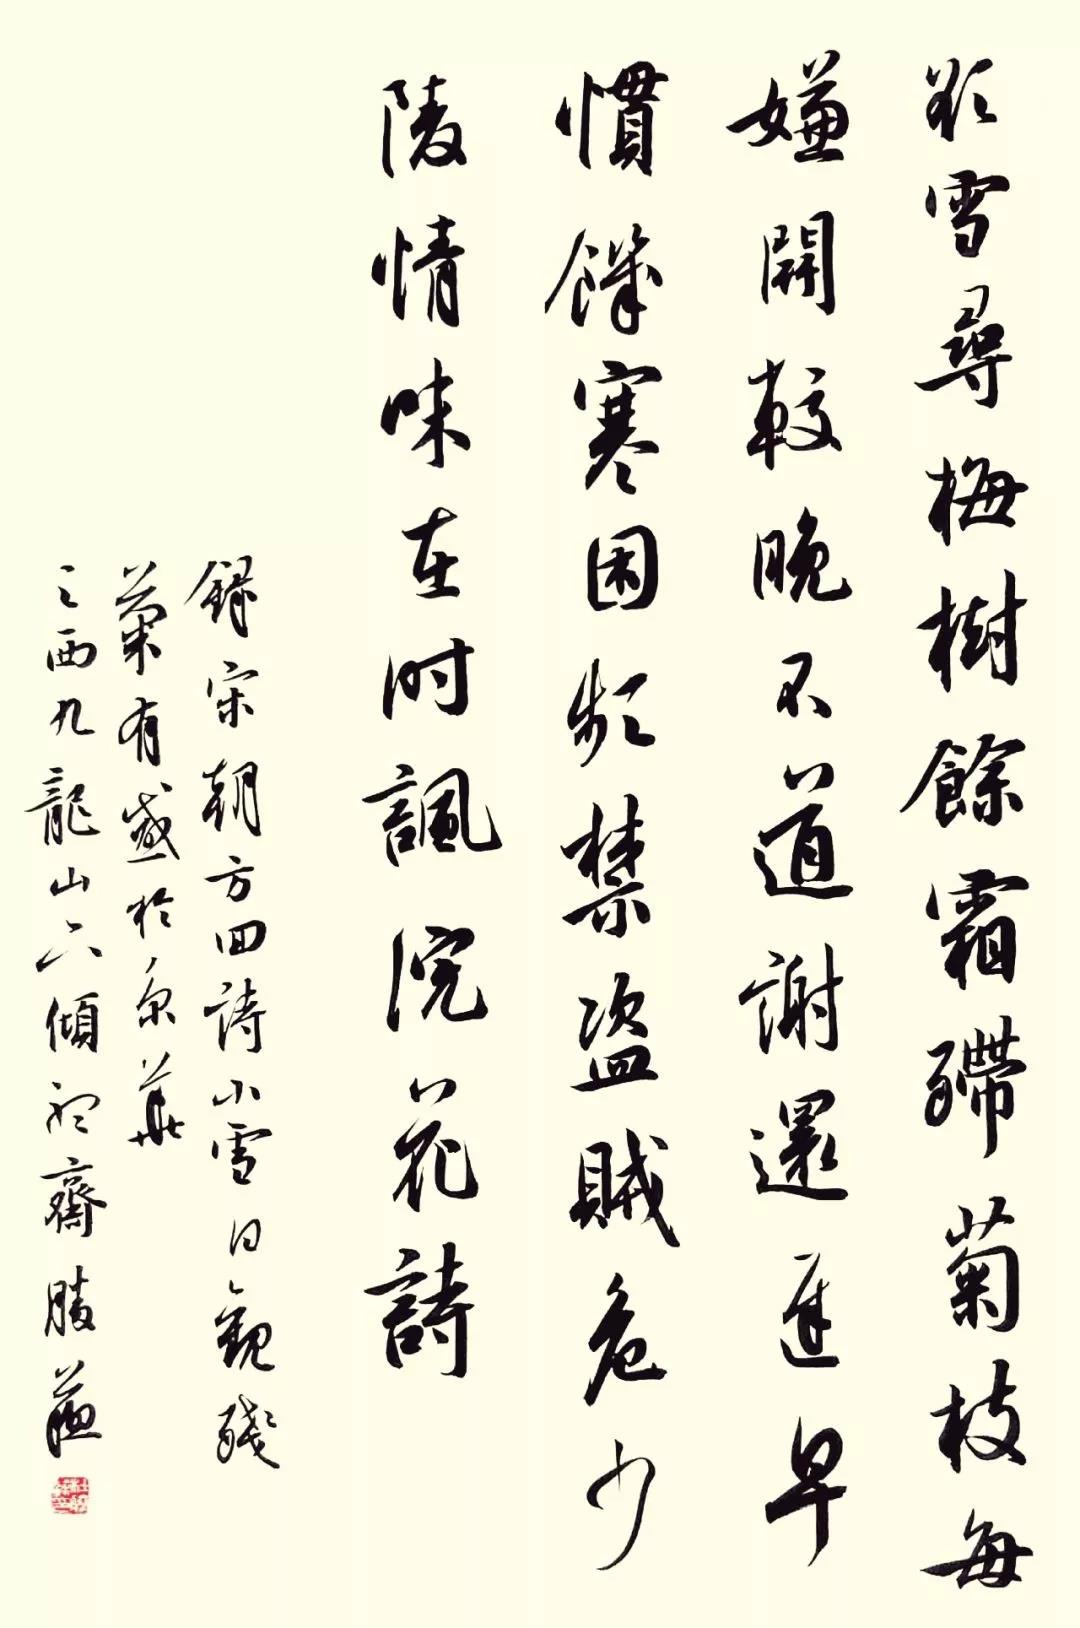 欲雪尋梅樹餘霜殢菊枝每
嫌開較晚不道謝還遲早
慣饑寒困頻禁盜賊危少
陵情味在時諷浣花詩
錄宋朝方回詩小雪日觀殘
菊有感於京華
之西九龍山六傾 齋勝